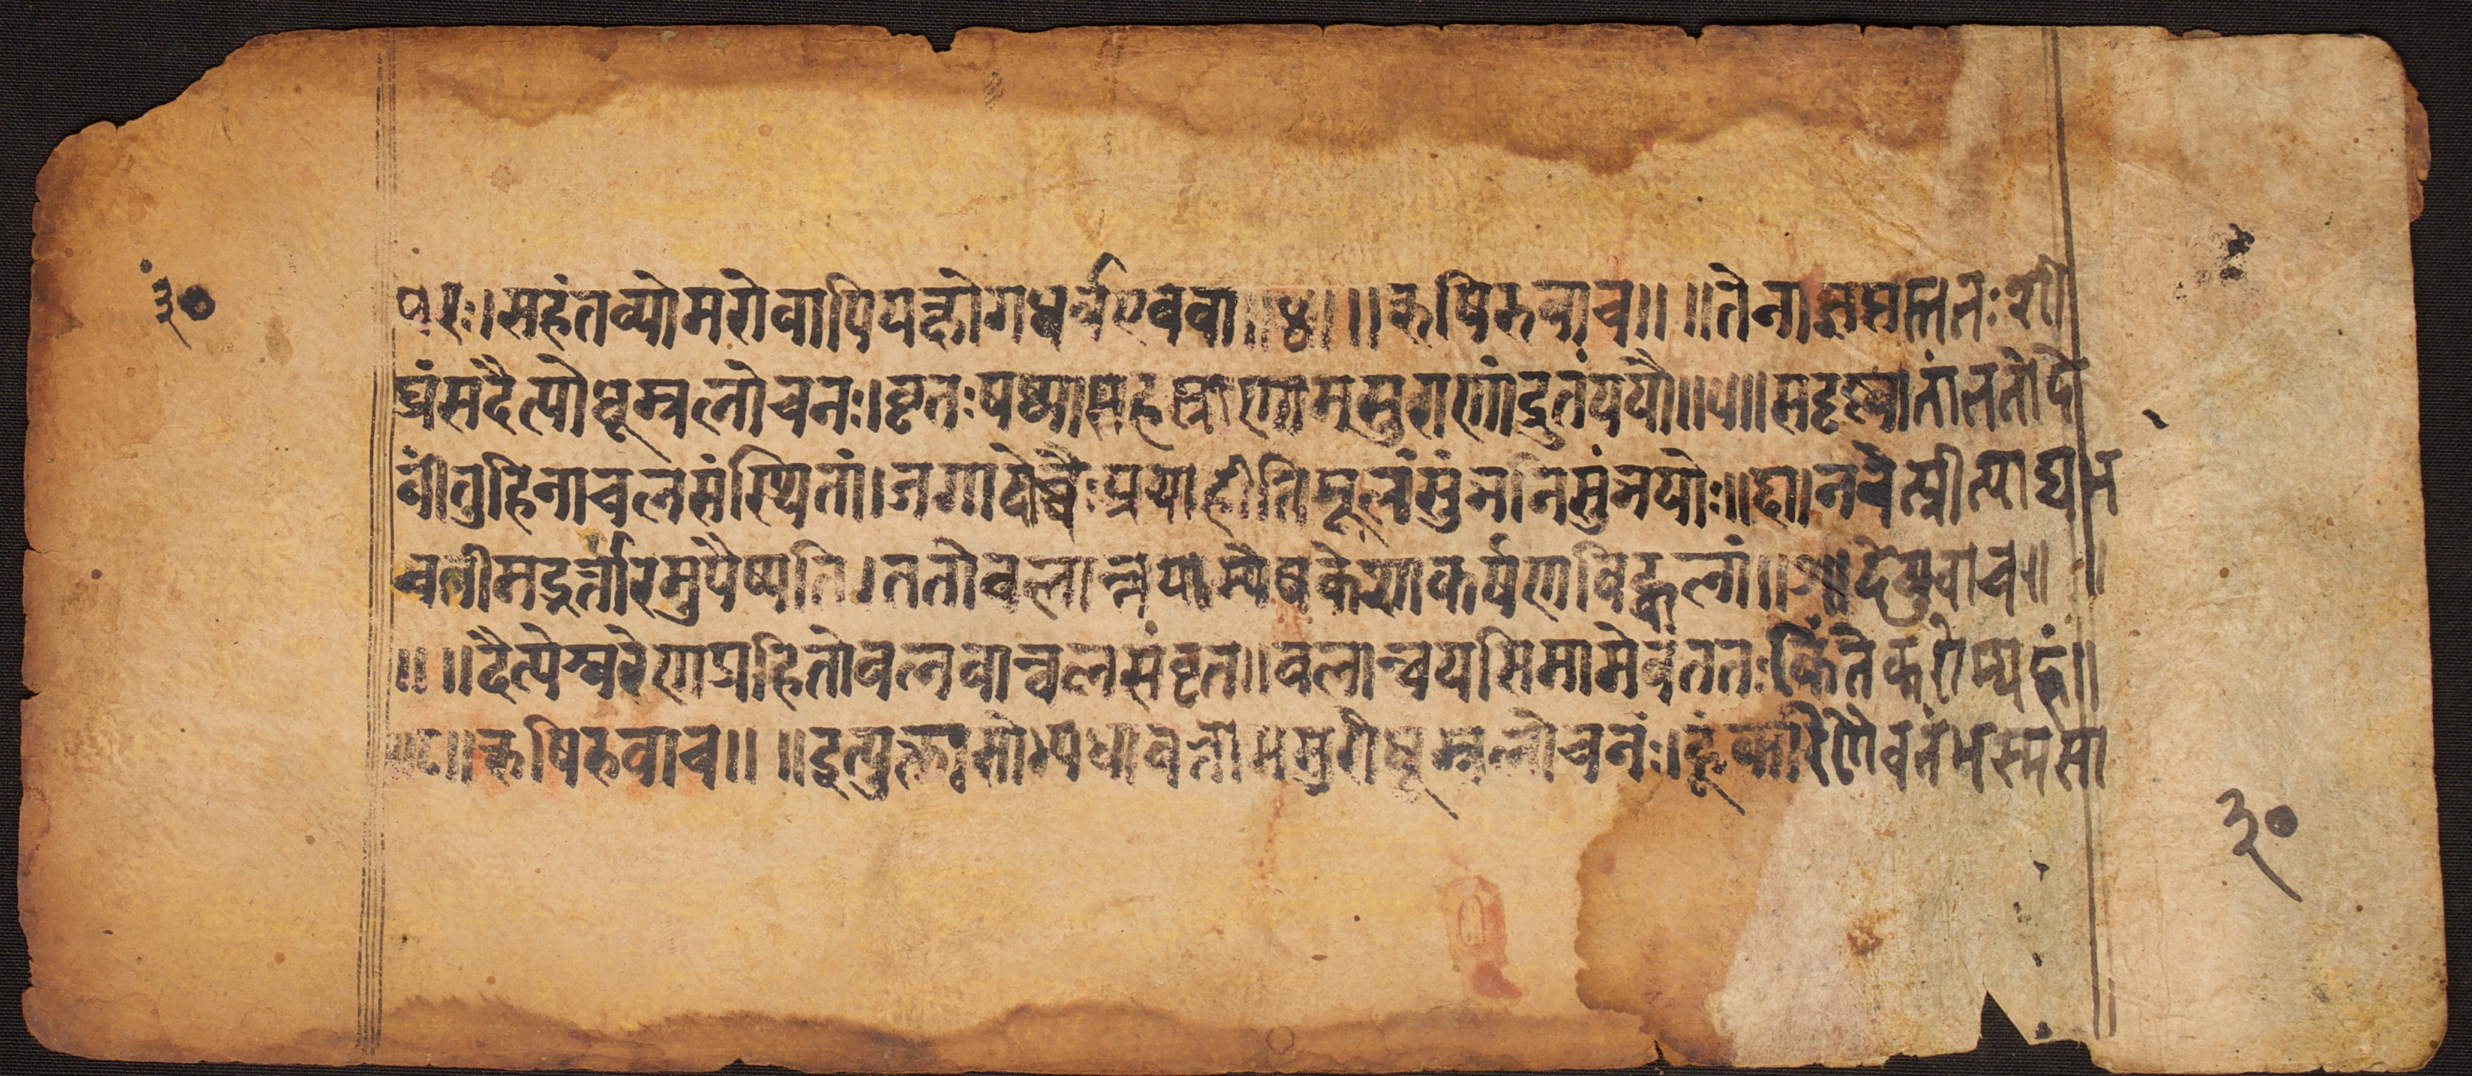 ३०
परः।सहंतव्योमरोवापियक्षोगधर्वएववा॥४॥ ॥ऋषिरुवाच॥ ॥तेनाज्ञप्तस्ततःशी
घ्रंसदैत्योधूम्रलोचनः।वृतःषष्ट्यासहस्राणामसुराणांद्रुतंययौ॥५॥सदृष्ट्वातांततोदे
वींतुहिनाचलसंस्थितां।जगादोच्चैःप्रयाहीतिमूलंसुंभनिसुंभयोः॥६॥नचेत्प्रीत्याद्यभ
वतीमद्भर्त्तारमुपैष्यति।ततोबलान्नयाम्येषकेशाकर्षणविह्वलां॥७॥देव्युवाच॥ ॥
॥ ॥दैत्येश्वरेणप्रहितोबलवान्बलसंवृत॥बलान्नयसिमामेवंततःकिंतेकरोम्यहं॥
॥८॥ऋषिरुवाच॥ ॥इत्युक्तःसोभ्यधावत्तामसुरोधूम्रलोचनंः।हूंकारेणैवतंभस्मसा
३०